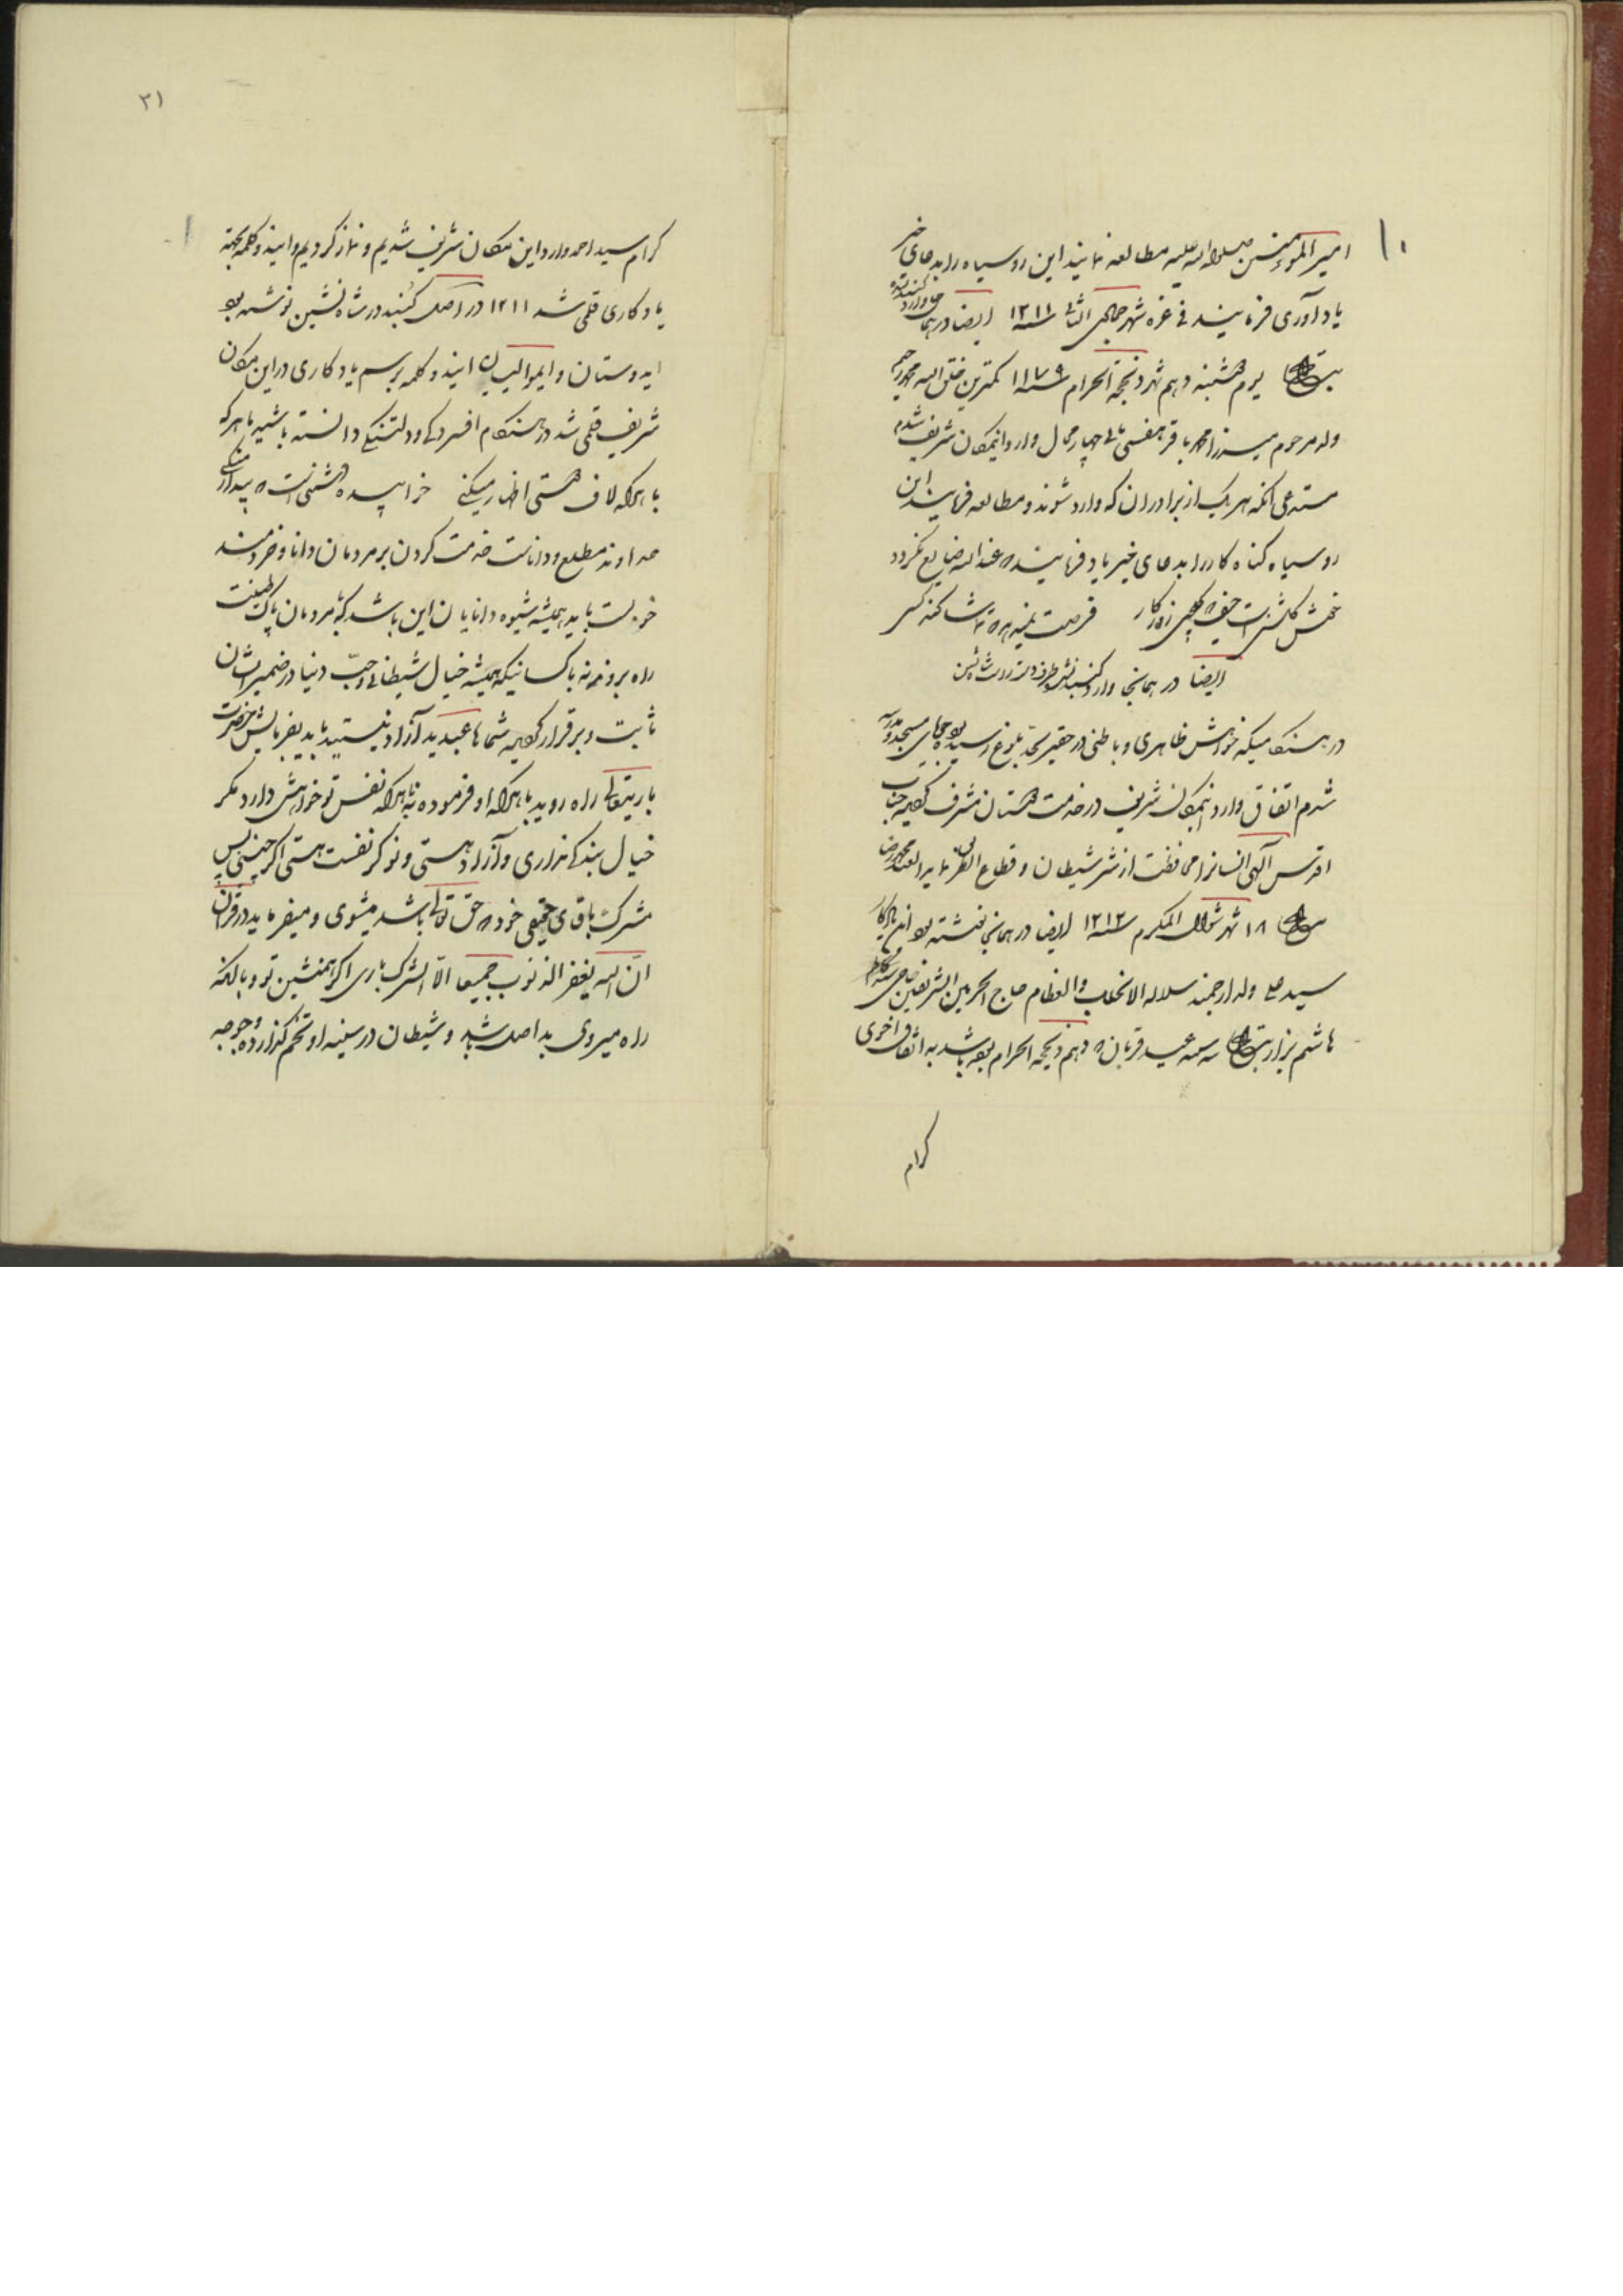 امیرالمؤمنین صلواة الله علیه مطالعه نمایند این روسیاه را بدعای خیر
یادآوری فرمایند فی غره شهر جمادی الثانی سنه ۱۲۱۱ ایضا در همانجا وارد گنبد
بتاریخ یوم شنبه دهم شهر ذیحجة الحرام سنه ۱۱۷۹ کمترین خلق الله محمد رحیم
ولد مرحوم میرزا محمد باقر چهار محال وارد اینمکان شریف شدم
مستدعی آنکه هر یک از برادران که وارد شوند و مطالعه فرمایند این
روسیاه گناه کار را بدعای خیر یاد فرمایند که عند الله ضایع نگردد
خوش گلشنی است حیف که گلچین روزگار فرصت نمیدهد که تماشا کند کسی
ایضا در همانجا وارد گنبد
در هنگامیکه خواهش ظاهری و باطنی در حقیر بحد بلوغ رسیده بود مسجد و مدرسه
شدم اتفاق وارد اینمکان شریف در خدمت دوستان مشرف گردیده جناب
اقدس الهی انسانرا محافظت از شر شیطان و قطاع الطریق نماید العبد محمد رضا
بتاریخ ۱۸ شهر شوال المکرم سنه ۱۲۱۲ ایضا در همانجا نوشته بود این یادگار
سید علی ولد ارجمند سلالة الانجاب والعظام حاج الحرمین الشریفین حاجی سید کاظم
هاشم بزاز بتاریخ سه شنبه عید قربان که دهم ذیحجه الحرام بوده باشد به اتفاق اخوی
کرام
۲۱
کرام سید احمد وارد این مکان شریف شدیم و نماز کردیم و ایندو کلمه بجهة
یادکاری قلمی شد ۱۲۱۱ در اصل گنبد در شاه نشین نوشته بود
ایدوستان و ایموالیان ایندو کلمه برسم یادکاری در این مکان
شریف قلمی شد در هنگام افسردگی و دلتنگی دانسته باشید با هرکه
با هرکه لاف دوستی اظهار میکنی خوابیده دشمنی است که بیدار میکنی
خداوند مطلع و داناست خدمت کردن بر مردمان دانا و خردمند
خوبست باید همیشه شیوه دانایان این باشد که با مردمان پاک طینت
راه بروند نه با کسانیکه همیشه خیال شیطانی و حبّ دنیا در ضمیر ایشان
ثابت و برقرار گردیده شماها عبدید آزاد نیستید باید بفرمایش حضرت
باریتعالی راه روید با هرکه او فرموده نه با هرکه نفس تو خواهش دارد مگر
خیال بندگی نداری و آزاد هستی و نوکر نفست هستی اگر چنینی پس
مشرک باقای حقیقی خود که حق تعالی باشد میشوی و میفرماید در قرآن
انّ الله یغفر الذنوب جمیعا الّا الشرک باری اگر همنشین تو و با آنکه
راه میروی بد اصل باشد و شیطان در سینه او تخم گذارده و جوجه